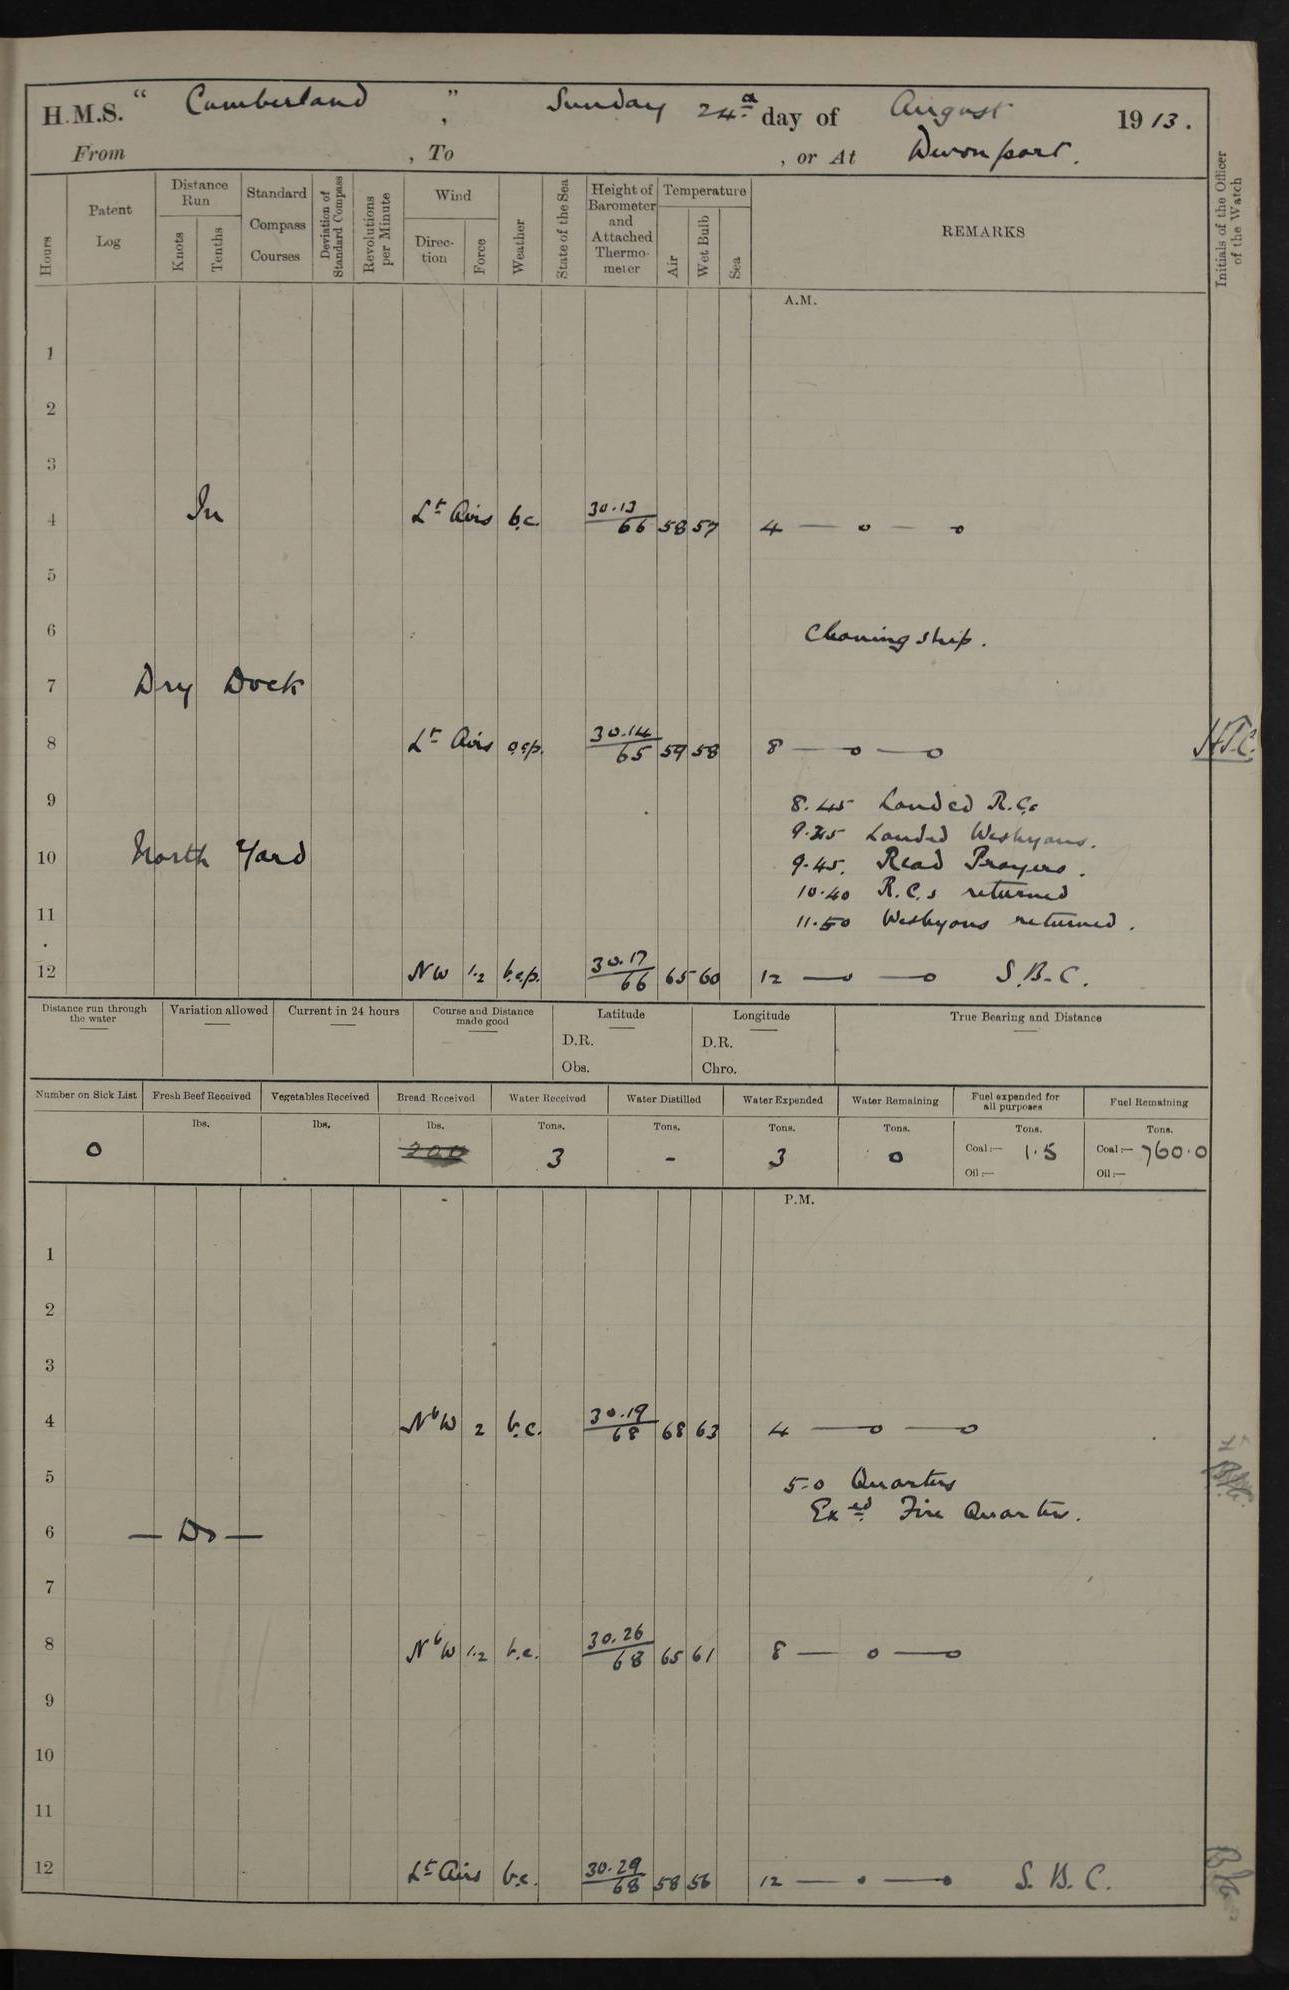 H.M.S. " Cumberland " , Sunday 24th day of August 1913.
From , To , or At Devonport.
Hours
Patent Log
Distance Run
Knots
Tenths
Standard Compass Courses
Deviation of Standard Compass
Revolutions per Minute
Wind
Direction
Force
Weather
State of the Sea
Height of Barometer and Attached Thermometer
Temperature
Air
Wet Bulb
Sea
REMARKS
Initials of the Officer of the Watch
A.M.
1
2
3
4 In Lt Airs b.c. 30.13/66 58 57 4 — o — o
5
6 Cleaning ship.
7 Dry Dock
8 Lt Airs o.c.p. 30.14/65 59 58 8 — o — o
9 8.45 Landed R.Cs
9.25 Landed Wesleyans.
10 North Yard 9.45. Read Prayers.
10.40 R.C.s returned
11 11.50 Wesleyans returned.
12 NW 1.2 b.c.p. 30.17/66 65 60 12 — o — o S.B.C.
Distance run through the water
Variation allowed
Current in 24 hours
Course and Distance made good
Latitude
D.R.
Obs.
Longitude
D.R.
Chro.
True Bearing and Distance
Number on Sick List
Fresh Beef Received
Vegetables Received
Bread Received
Water Received
Water Distilled
Water Expended
Water Remaining
Fuel expended for all purposes
Fuel Remaining
lbs. lbs. lbs. Tons. Tons. Tons. Tons. Tons. Tons.
0 200 3 - 3 0 Coal:— 1.5 Coal:— 760.0
Oil:— Oil:—
P.M.
1
2
3
4 NbW 2 b.c. 30.19/68 68 63 4 — o — o
5 5.0 Quarters
Exed Fire Quarters.
6 — Do —
7
8 NbW 1.2 b.c. 30.26/68 65 61 8 — o — o
9
10
11
12 Lt Airs b.c. 30.29/68 58 56 12 — o — o S.B.C.